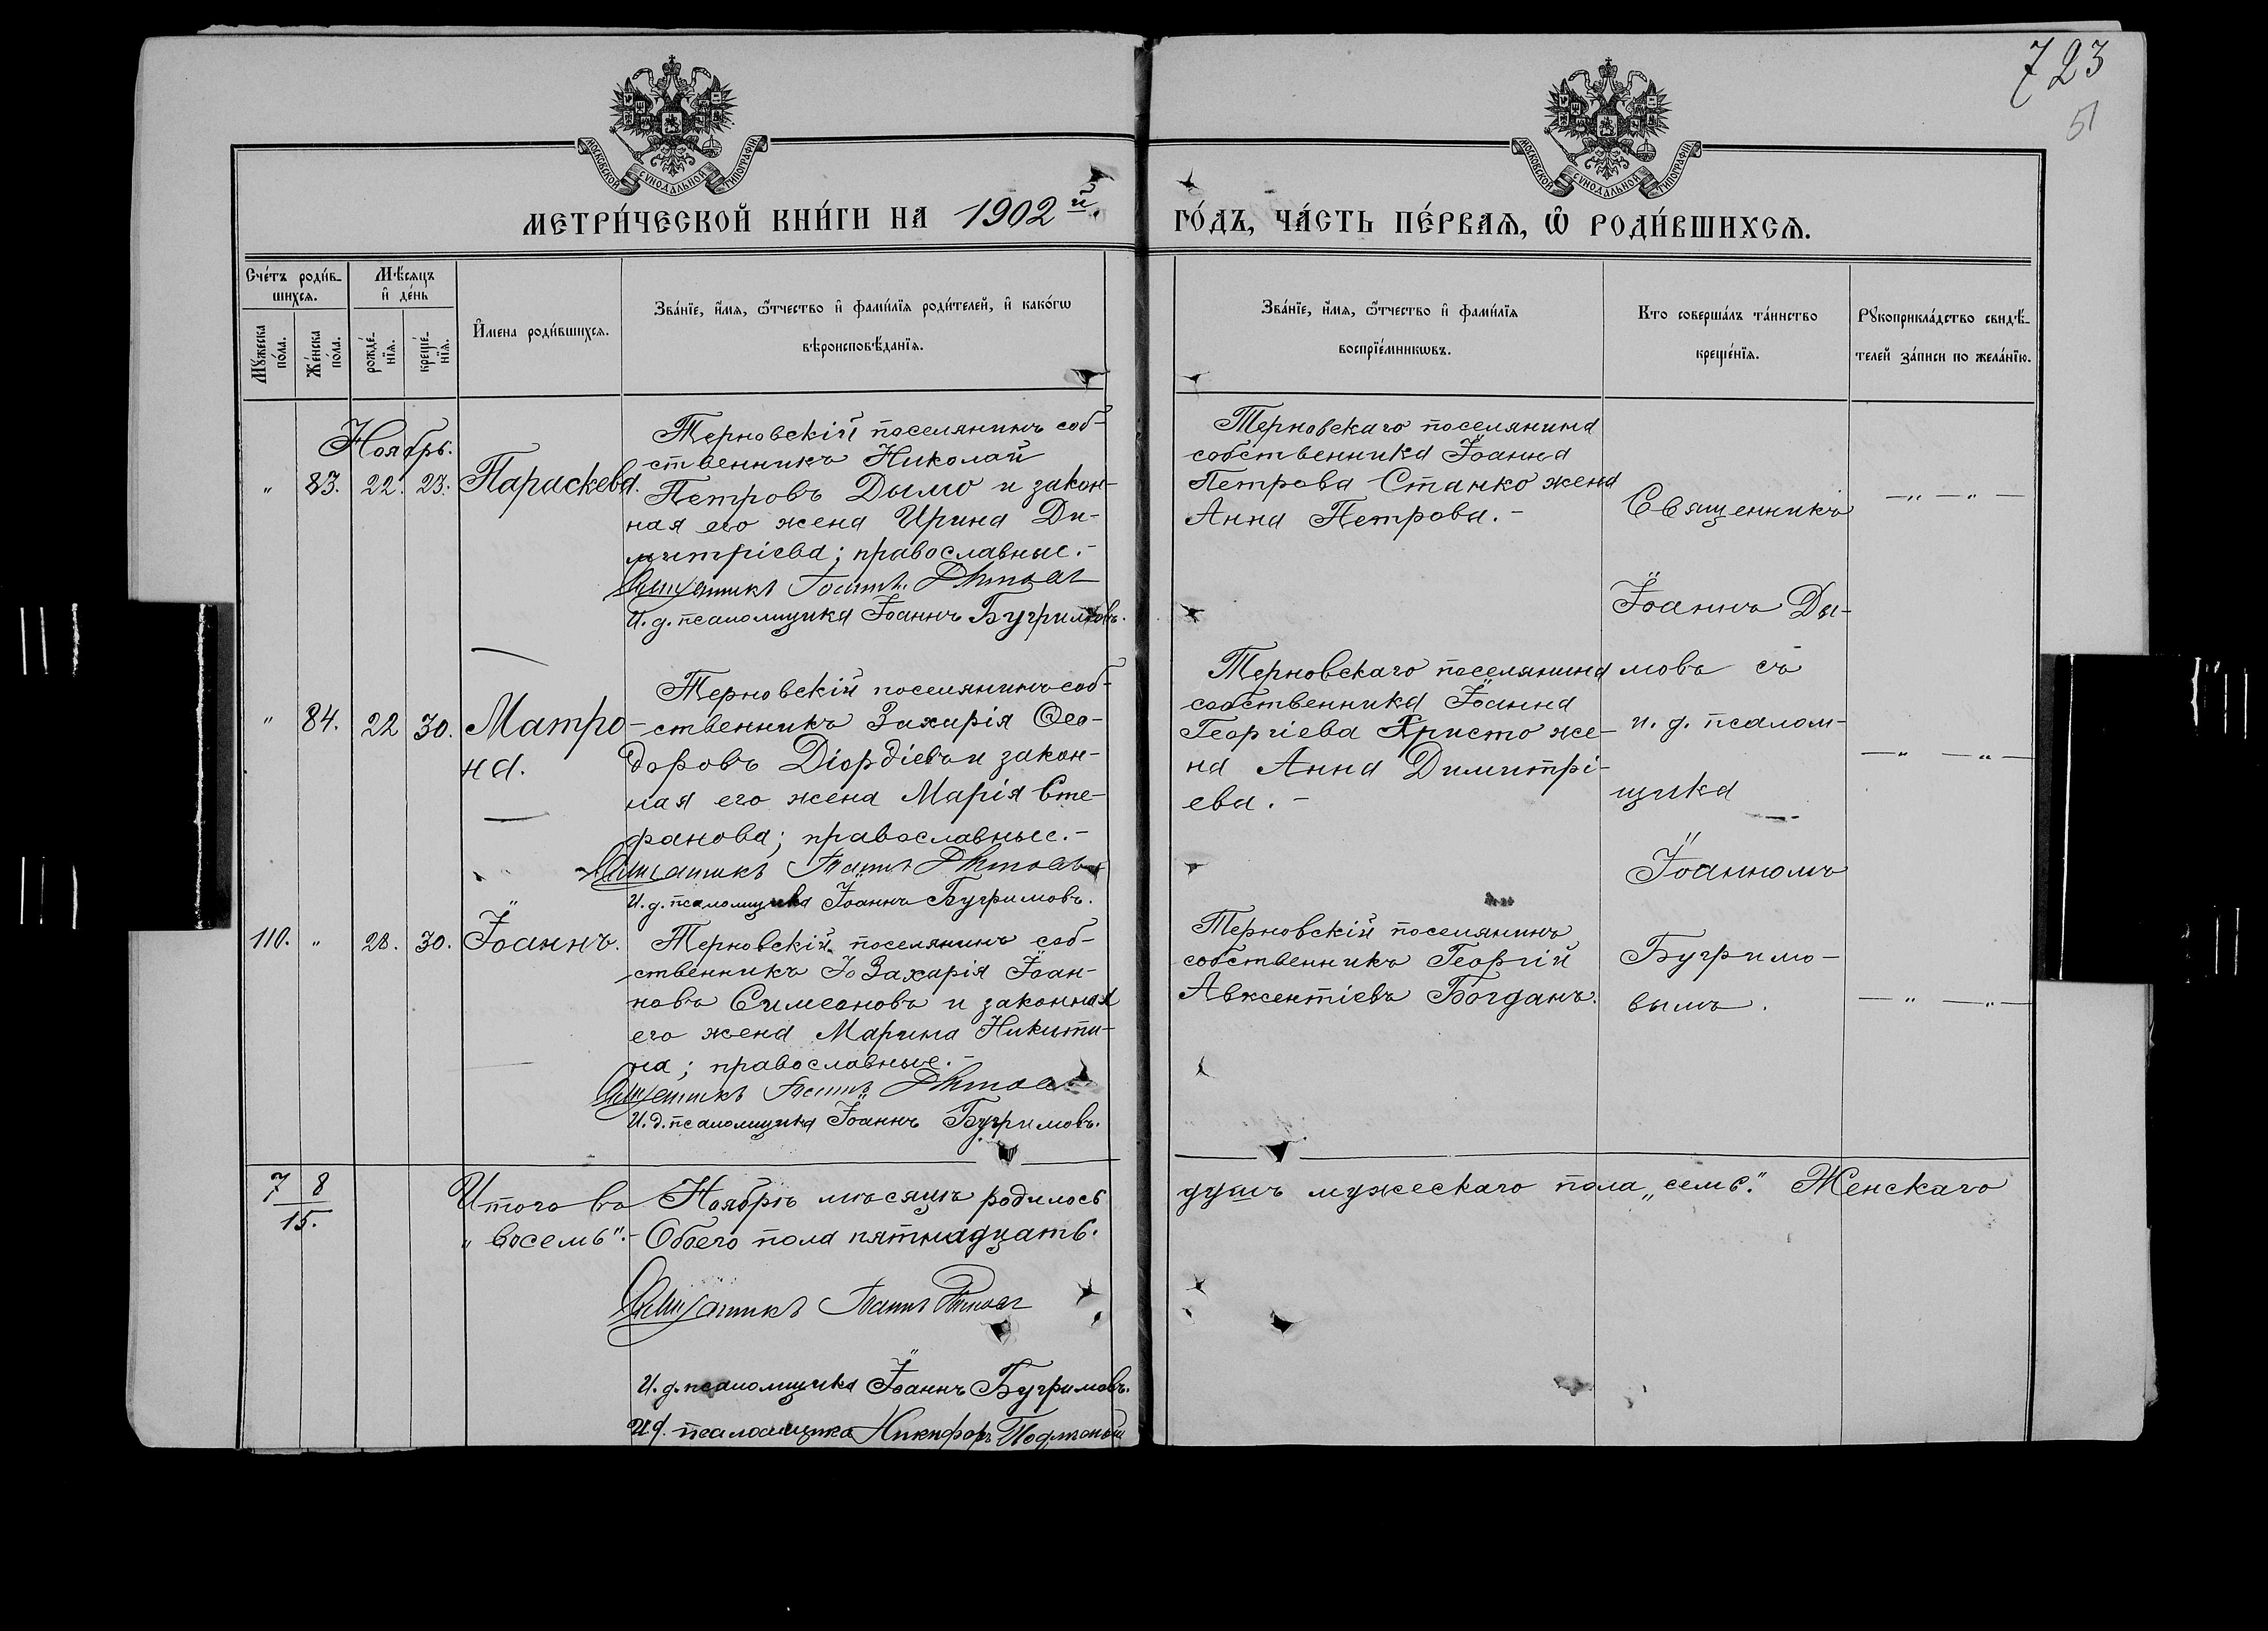 723
51
МОСКОВСКОЙ СѴНОДАЛЬНОЙ ТИПОГРАФІИ
МОСКОВСКОЙ СѴНОДАЛЬНОЙ ТИПОГРАФІИ
МЕТРИ́ЧЕСКОЙ КНИ́ГИ НА 1902й.
ГО́ДЪ, ЧА́СТЬ ПЕ́РВАѦ, Ѽ РОДИ́ВШИХСѦ.
Сче́тъ роди́в-
шихсѧ.
Мꙋ́жеска по́ла.
Же́нска по́ла.
Мѣ́сѧцъ
и҆ де́нь
рожде́-
нїѧ.
креще́-
нїѧ.
И҆мена роди́вшихсѧ.
Зва́нїе, и҆́мѧ, ѻ҆́тчество и҆ фами́лїѧ роди́телей, и҆ како́гѡ
вѣроисповѣ́данїѧ.
Зва́нїе, и҆́мѧ, ѻ҆́тчество и҆ фами́лїѧ
воспрїе́мникѡвъ.
Кто соверша́лъ та́инство
креще́нїѧ.
Рꙋкоприкла́дство свидѣ́-
телей за́писи по жела́нїю.
Ноябрь.
" 83. 22. 23. Параскева.
Терновскій поселянинъ соб-
ственникъ Николай
Петровъ Дымо и закон-
ная его жена Ирина Ди-
митріева; православные.-
Священникъ Іоаннъ Дымовъ
И. д. псаломщика Іоаннъ Бугримовъ.
Терновскаго поселянина
собственника Іоанна
Петрова Станко жена
Анна Петрова.-
" 84. 22 30. Матро-
на.
Терновскій поселянинъ соб-
ственникъ Захарія Ѳео-
доровъ Діордіевъ и закон-
ная его жена Марія Сте-
фанова; православные.-
Священникъ Іоаннъ Дымовъ
И. д. псаломщика Іоаннъ Бугримовъ.
Терновскаго поселянина
собственника Іоанна
Георгіева Христо же-
на Анна Димитрі-
ева.-
110. " 28. 30. Іоаннъ.
Терновскій поселянинъ соб-
ственникъ Іо Захарія Іоан-
новъ Симеоновъ и законная
его жена Марина Никити-
на; православные.-
Священникъ Іоаннъ Дымовъ
И. д. псаломщика Іоаннъ Бугримовъ.
Терновскій поселянинъ
собственникъ Георгій
Авксентіевъ Богданъ.
Священникъ
Іоаннъ Ды-
мовъ съ
и. д. псалом-
щика
Іоанномъ
Бугримо-
вымъ.
7 8
15.
Итого въ Ноябрѣ мѣсяцѣ родилось
душъ мужескаго пола „семь." Женскаго
„восемь".- Обоего пола пятнадцать.
Священникъ Іоаннъ Дымовъ
И. д. псаломщика Іоаннъ Бугримовъ.
И д. псаломщика Никифоръ